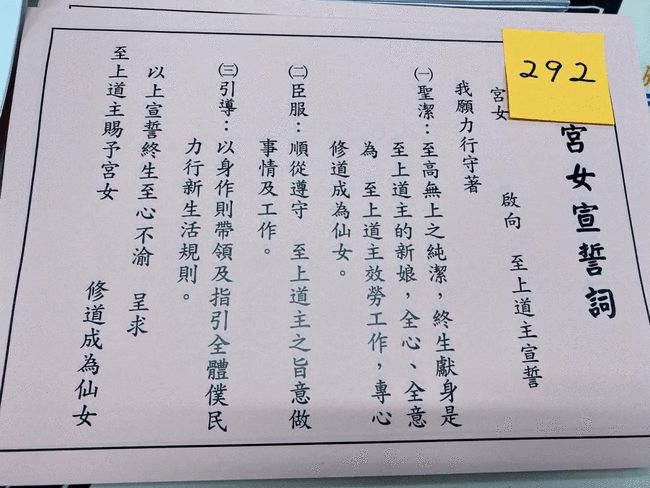 292
宮女宣誓詞
宮女　　　　啟向　至上道主宣誓
我願力行守著
㈠聖潔：至高無上之純潔，終生獻身是
至上道主的新娘，全心、全意
為　至上道主效勞工作，專心
修道成為仙女。
㈡臣服：順從遵守　至上道主之旨意做
事情及工作。
㈢引導：以身作則帶領及指引全體僕民
力行新生活規則。
以上宣誓終生至心不渝　呈求
至上道主賜予宮女
修道成為仙女